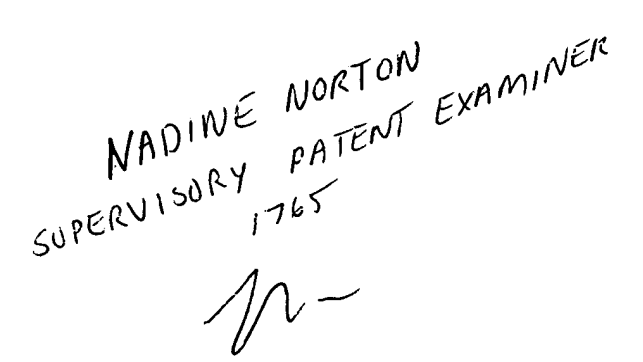 NADINE NORTON
SUPERVISORY PATENT EXAMINER
1765